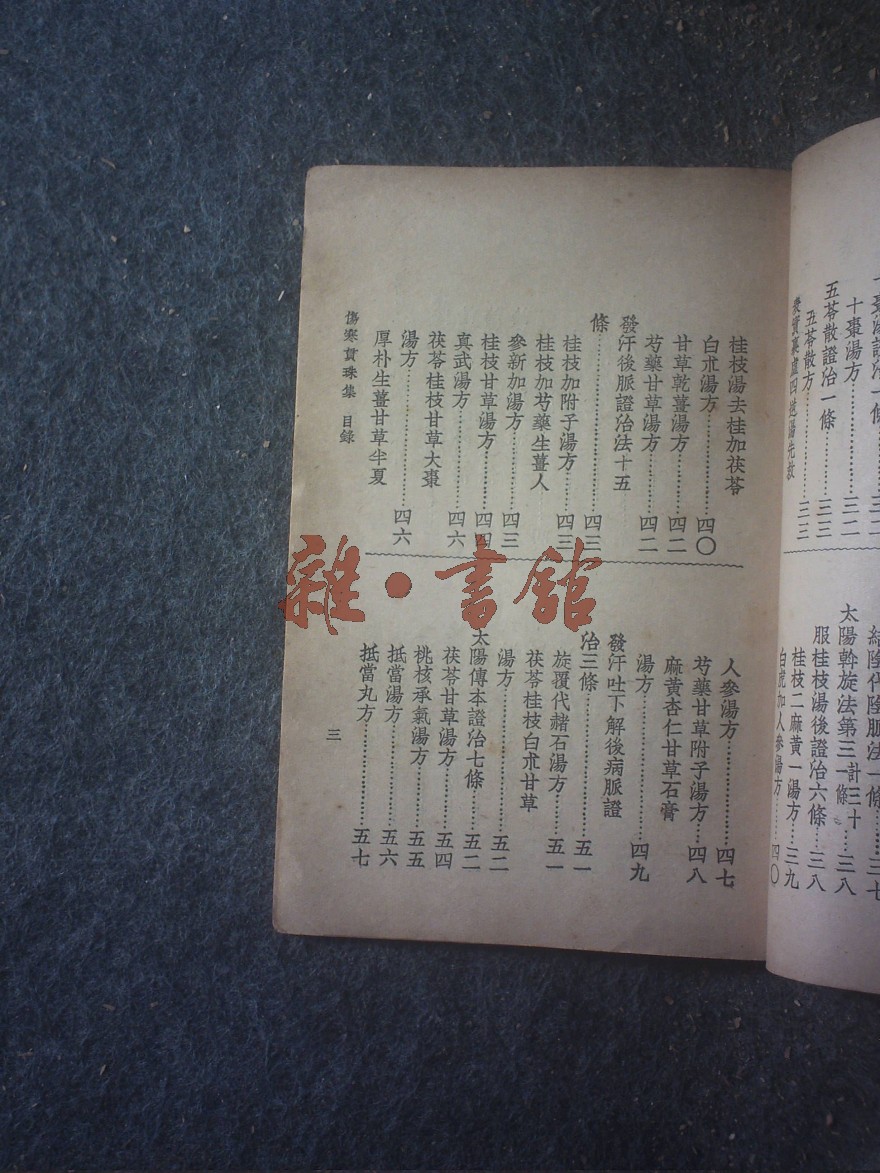 十棗湯方……三二
五苓散證治一條……三三
五苓散方……三三
太陽斡旋法第三計三十一條……三八
服桂枝湯後證治六條……三八
桂枝二麻黃一湯方……三九
白虎加人參湯方……四〇
桂枝湯去桂加茯苓
白朮湯方……四〇
甘草乾薑湯方……四二
芍藥甘草湯方……四二
發汗後脈證治法十五
條……四三
桂枝加附子湯方……四三
桂枝加芍藥生薑人
參新加湯方……四三
桂枝甘草湯方……四四
真武湯方……四六
茯苓桂枝甘草大棗
湯方……四六
厚朴生薑甘草半夏
人參湯方……四七
芍藥甘草附子湯方……四八
麻黃杏仁甘草石膏
湯方……四九
發汗吐下解後病脈證
治三條……五一
旋覆代赭石湯方……五一
茯苓桂枝白朮甘草
湯方……五二
太陽傳本證治七條……五二
茯苓甘草湯方……五四
桃核承氣湯方……五五
抵當湯方……五六
抵當丸方……五七
傷寒貫珠集 目錄
三
雜·書館